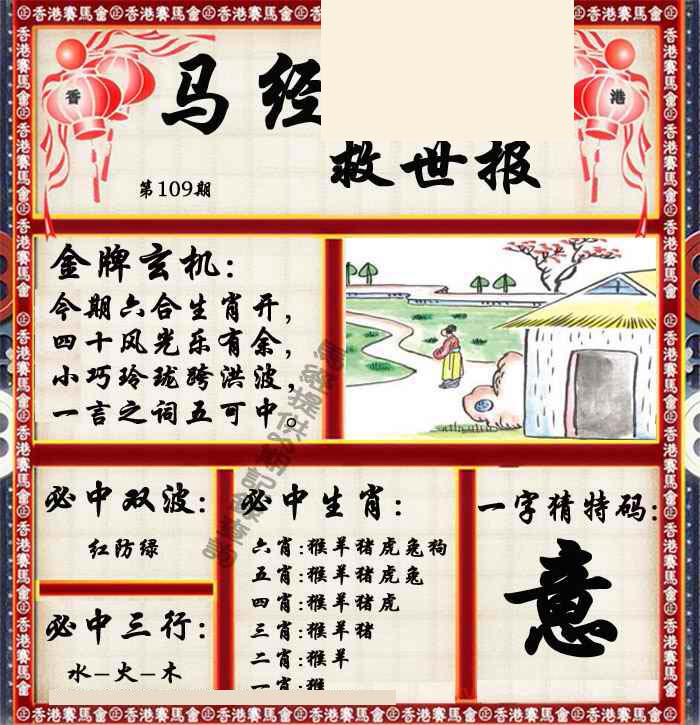 香港賽馬會㊣香港賽馬會㊣香港賽馬會
香
港
马经
救世报
第109期
金牌玄机:
今期六合生肖开,
四十风光乐有余,
小巧玲珑跨洪波,
一言之词五可中。
必中双波:
红防绿
必中三行:
水–火–木
必中生肖:
六肖:猴羊猪虎兔狗
五肖:猴羊猪虎兔
四肖:猴羊猪虎
三肖:猴羊猪
二肖:猴羊
一肖:猴
一字猜特码:
意
香港賽馬會㊣香港賽馬會㊣香港賽馬會